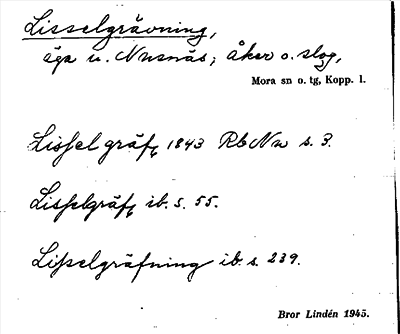 Lisselgrävning,
äga u. Nusnäs; åker o. slog,
Mora sn o. tg, Kopp. l.
Lisselgräfg 1843 Rb Nu s. 3.
Lisselgräfg ib. s. 55.
Lisselgräfning ib. s. 239.
Bror Lindén 1945.